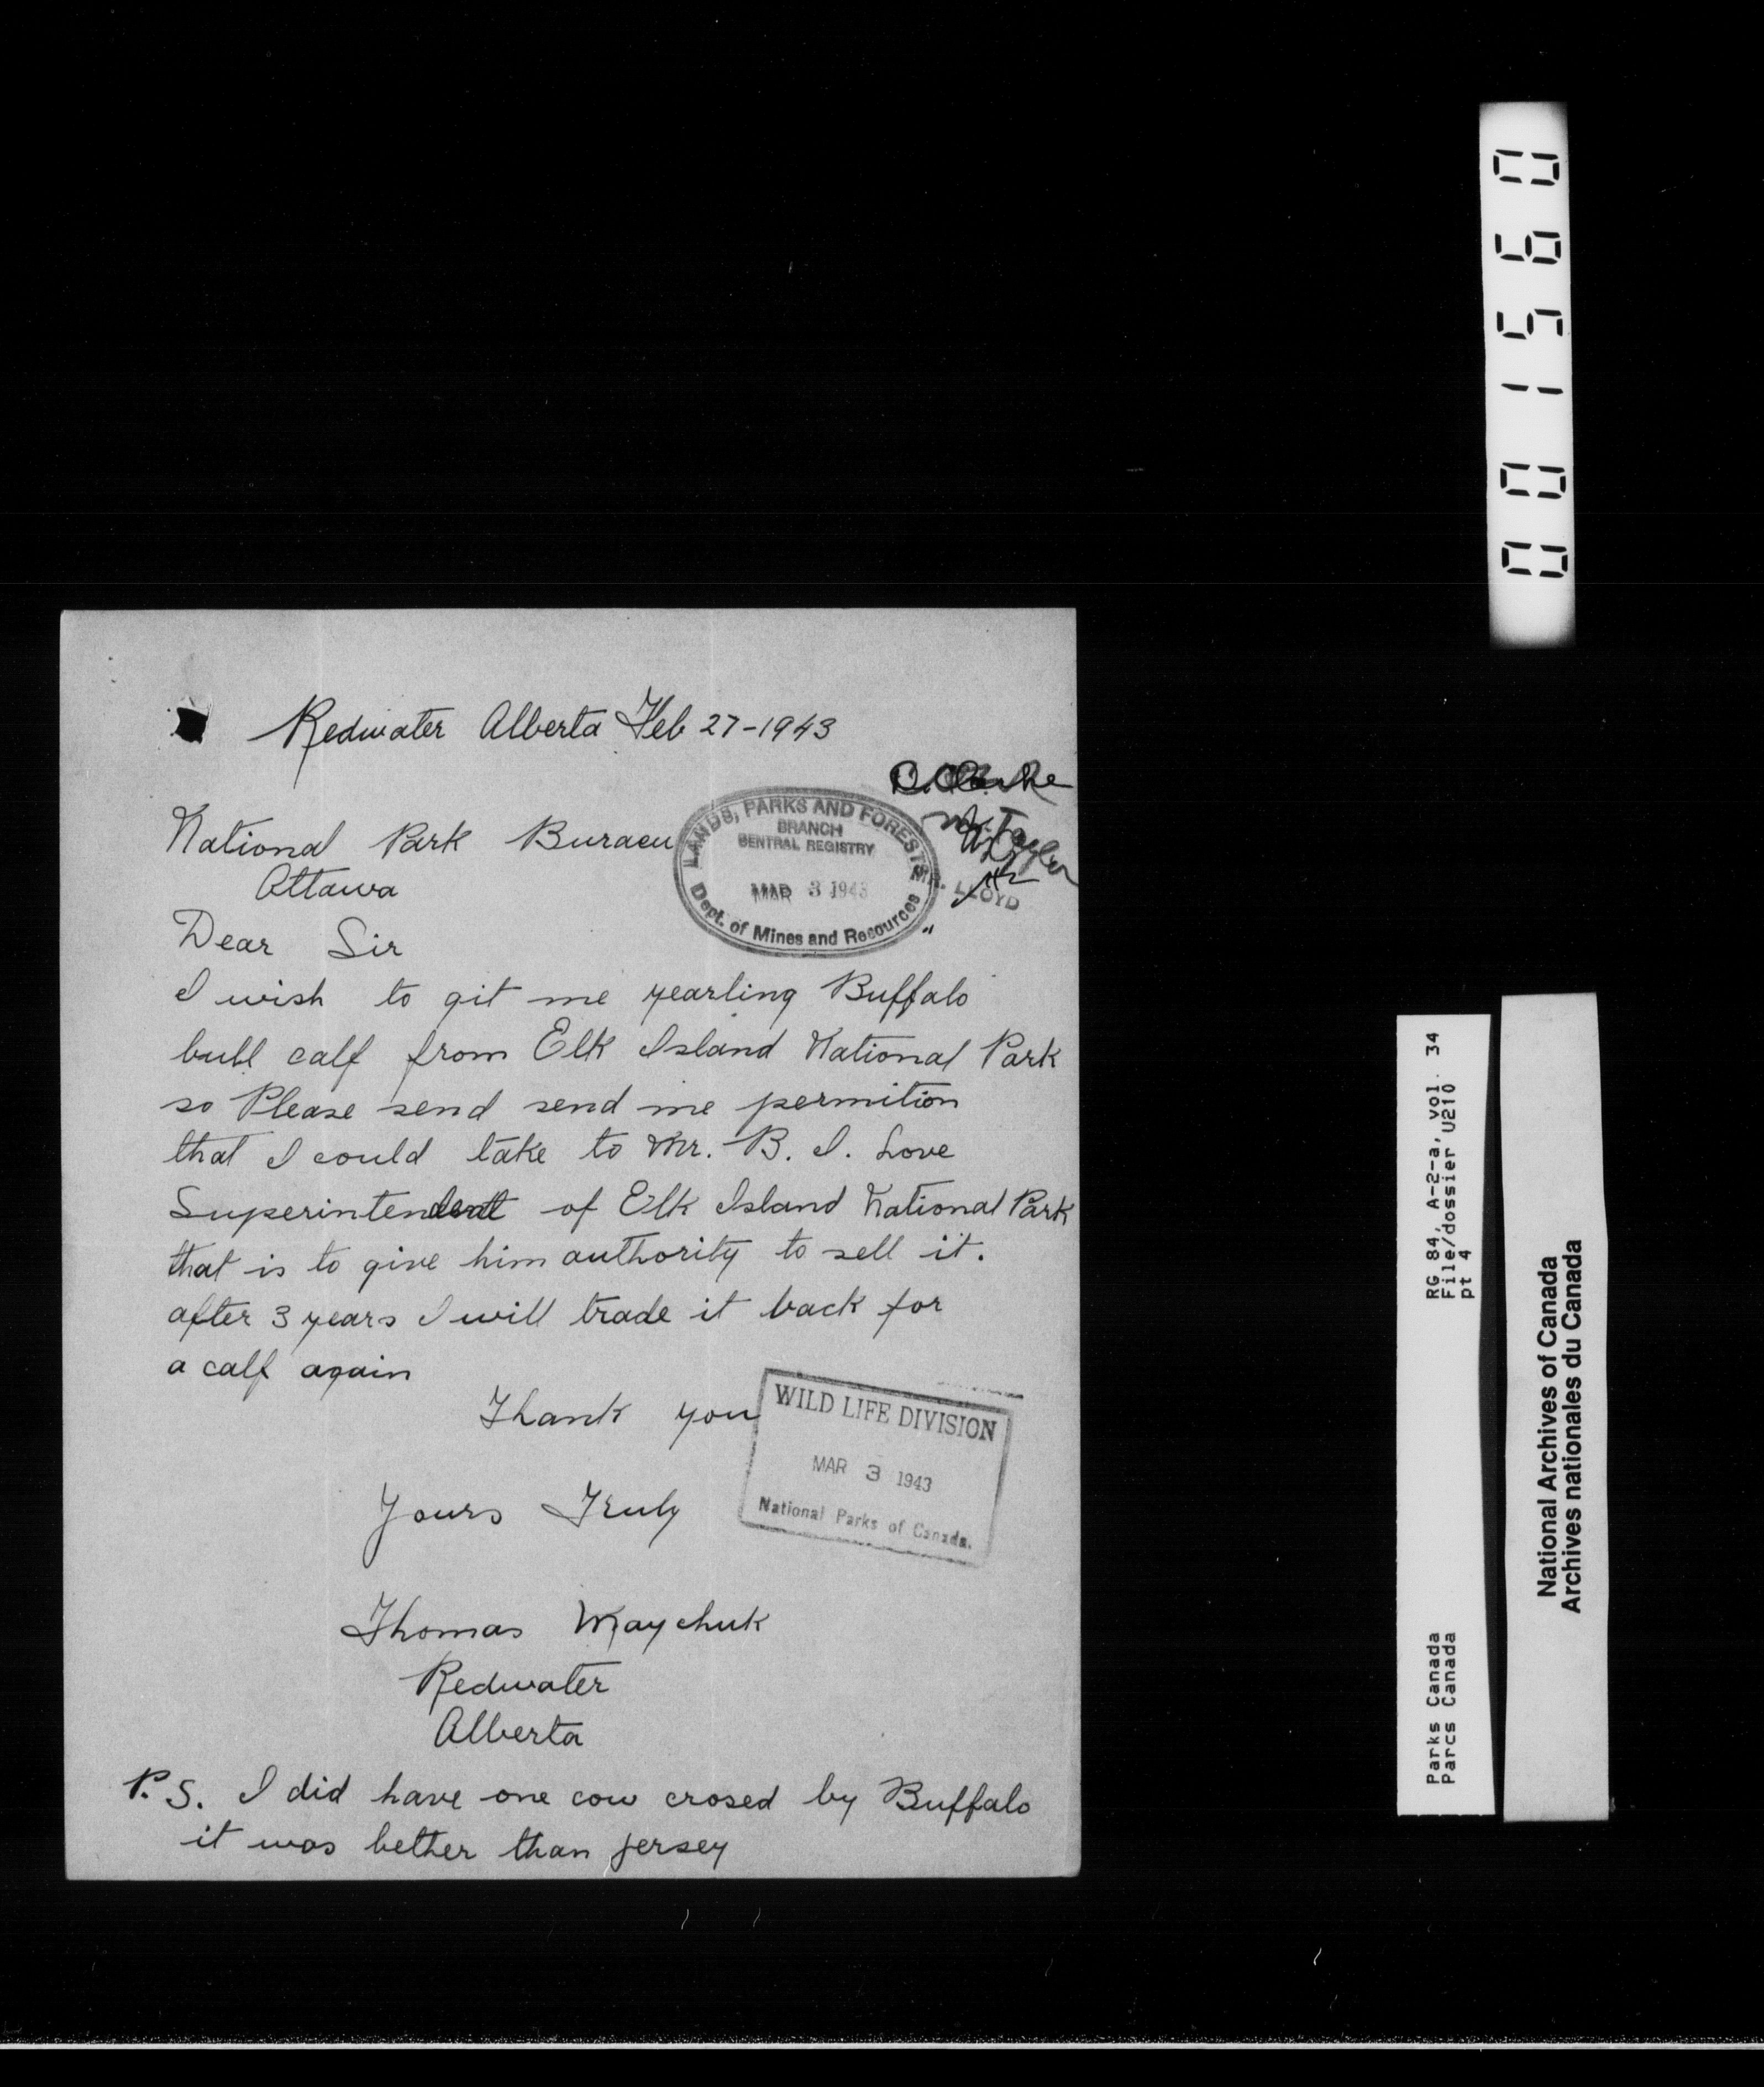 Redwater Alberta Feb 27-1943
National Park Buraeu
Ottawa
LANDS, PARKS AND FORESTS
BRANCH
CENTRAL REGISTRY
MAR 3 1943
Dept. of Mines and Resources
Mr. Taylor
MR. LLOYD
Dear Sir
I wish to git me yearling Buffalo
bull calf from Elk Island National Park
so Please send send me permition
that I could take to Mr. B. I. Love
Superintendent of Elk Island National Park
that is to give him authority to sell it.
after 3 years I will trade it back for
a calf again
Thank you
WILD LIFE DIVISION
MAR 3 1943
National Parks of Canada.
Yours Truly
Thomas Maychuk
Redwater
Alberta
P.S. I did have one cow crosed by Buffalo
it was bether than jersey
001560
Parks Canada RG 84, A-2-a, vol. 34
Parcs Canada File/dossier U210
pt 4
National Archives of Canada
Archives nationales du Canada